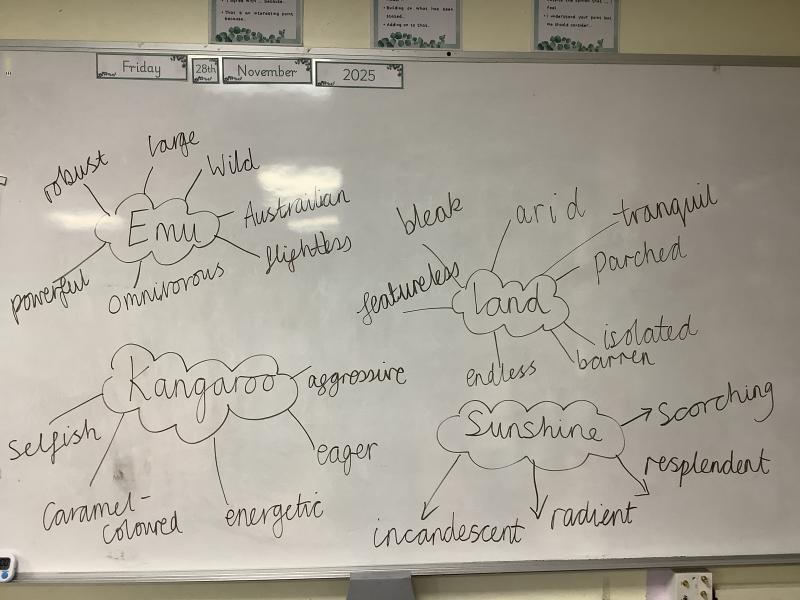 I agree with ... because.
That is an interesting point because.
Building on what has been stated..
Adding on to that..
feel
I understand your point but we should consider..
Friday 28th November 2025
robust
large
Wild
Emu
Austrailian
flightless
powerful
omnivorous
bleak
arid
tranquil
featureless
land
parched
isolated
barren
endless
Kangaroo
aggressive
Selfish
eager
Caramel-
coloured
energetic
Sunshine
Scorching
resplendent
radient
incandescent